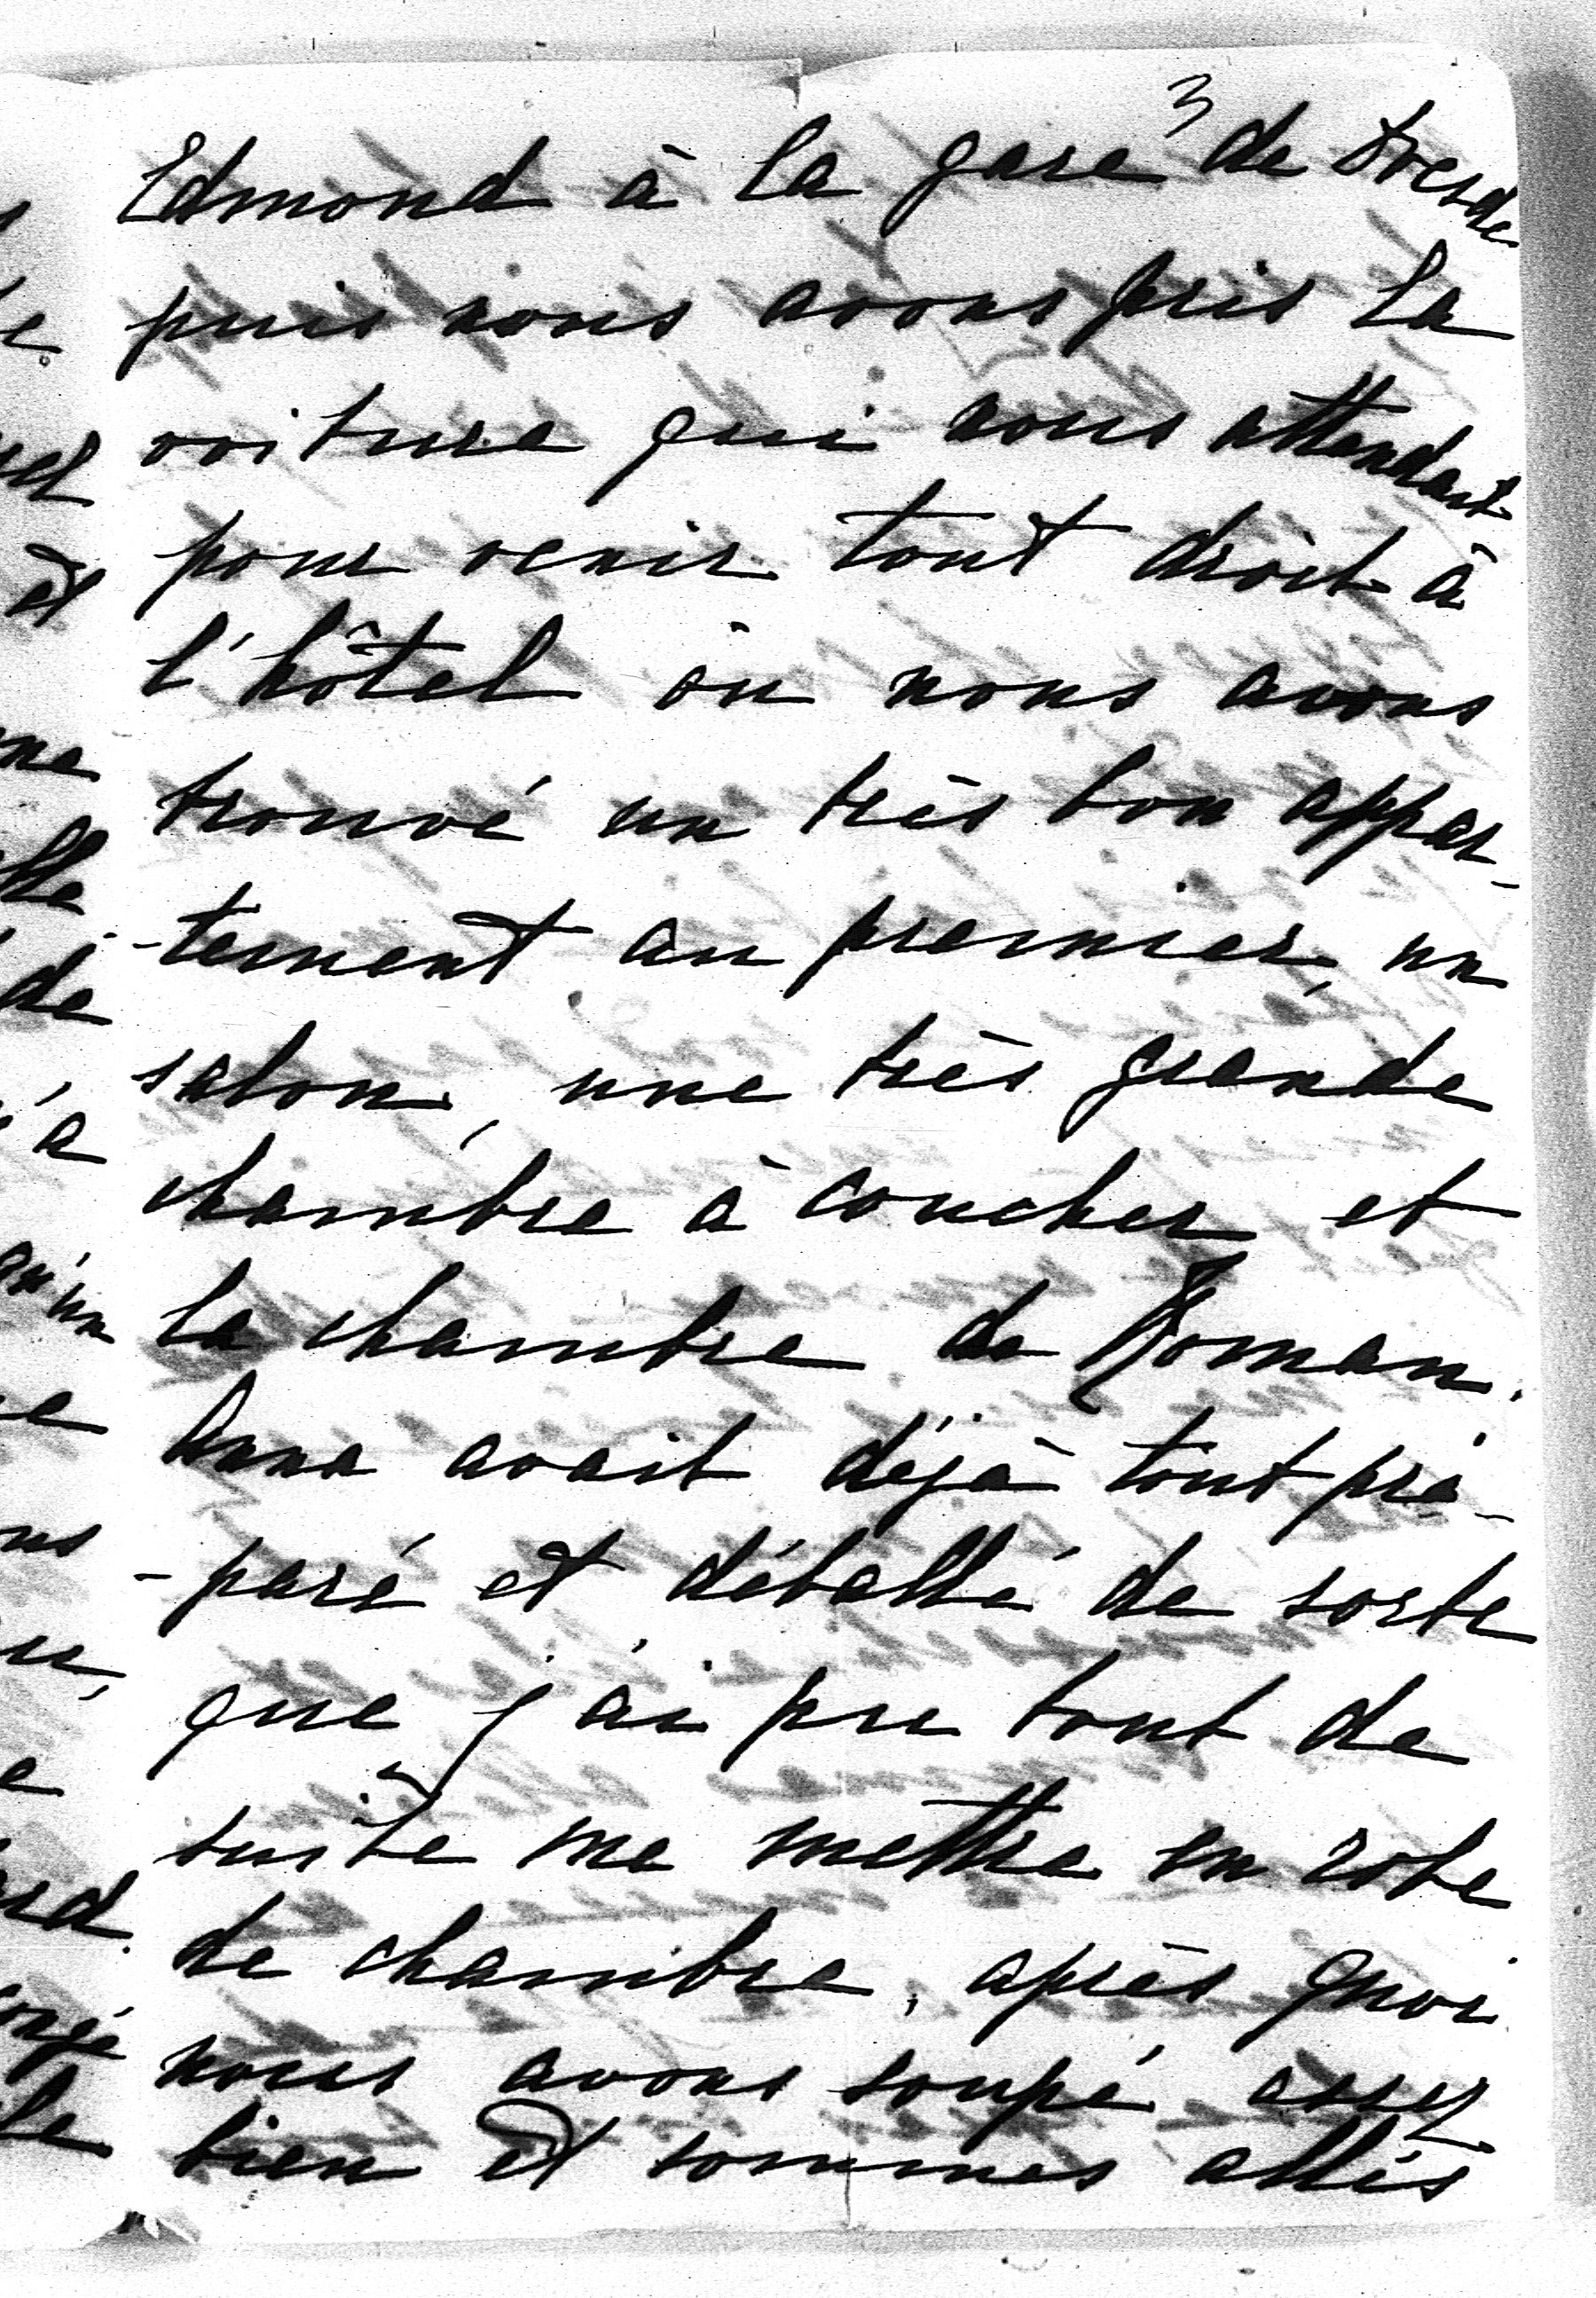 3
Edmond à la gare de Dresde
puis nous avons pris la
voiture qui nous attendait
pour venir tout droit à
l'hôtel où nous avons
trouvé un très bon appar-
-tement au premier, un
salon, une très grande
chambre à coucher et
la chambre de Roman.
Anna avait déjà tout pré-
-paré et déballé de sorte
que j'ai pu tout de
suite me mettre en robe
de chambre, après quoi
nous avons soupé assez
bien et sommes allés